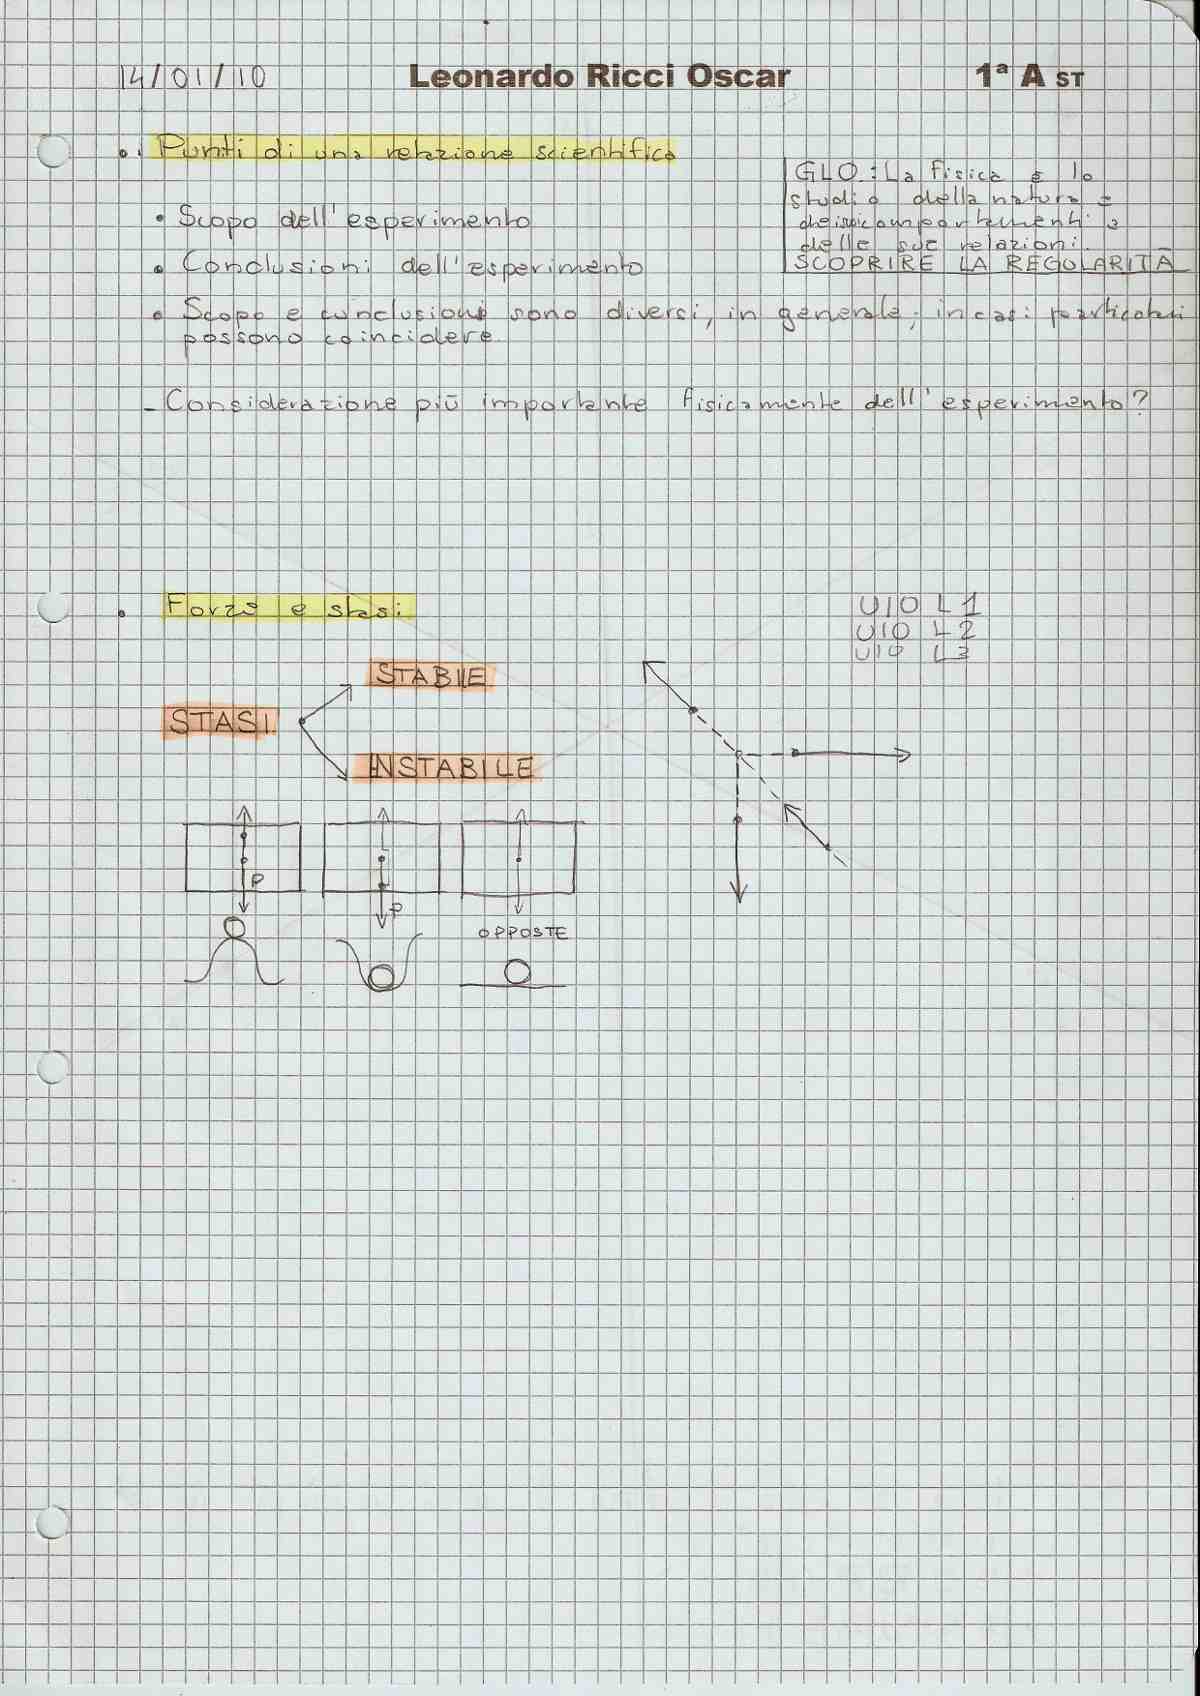 14/01/10
Leonardo Ricci Oscar
1ª A ST
Punti di una relazione scientifica
GLO.: La fisica è lo
studio della natura e
dei suoi comportamenti e
delle sue relazioni.
SCOPRIRE LA REGOLARITÀ
• Scopo dell'esperimento
• Conclusioni dell'esperimento
• Scopo e conclusioni sono diversi, in generale; in casi particolari
possono coincidere.
- Considerazione più importante fisicamente dell'esperimento?
• Forze e stasi
U10 L1
U10 L2
U10 L3
STABILE
STASI
INSTABILE
P
P
OPPOSTE